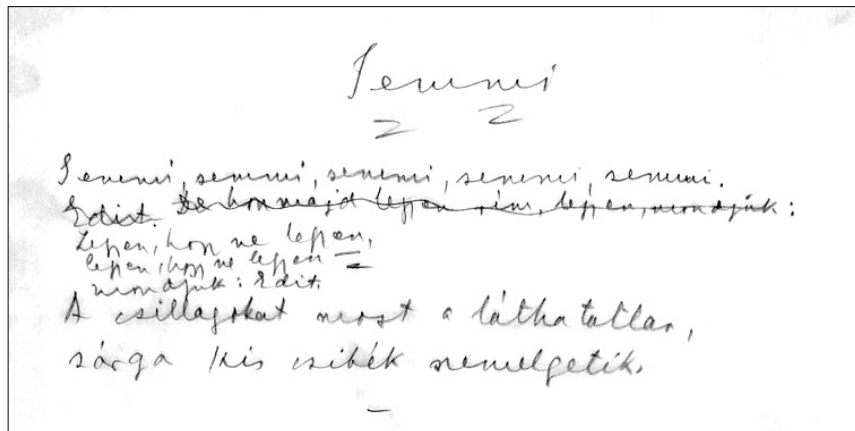 Semmi
Semmi, semmi, semmi, semmi, semmi.
Edit. De hogy majd legyen rím, legyen, mondjuk:
Legyen, hogy ne legyen,
legyen, hogy ne legyen –
mondjuk: Edit.
A csillagokat most a láthatatlan,
sárga kis csibék szemelgetik.